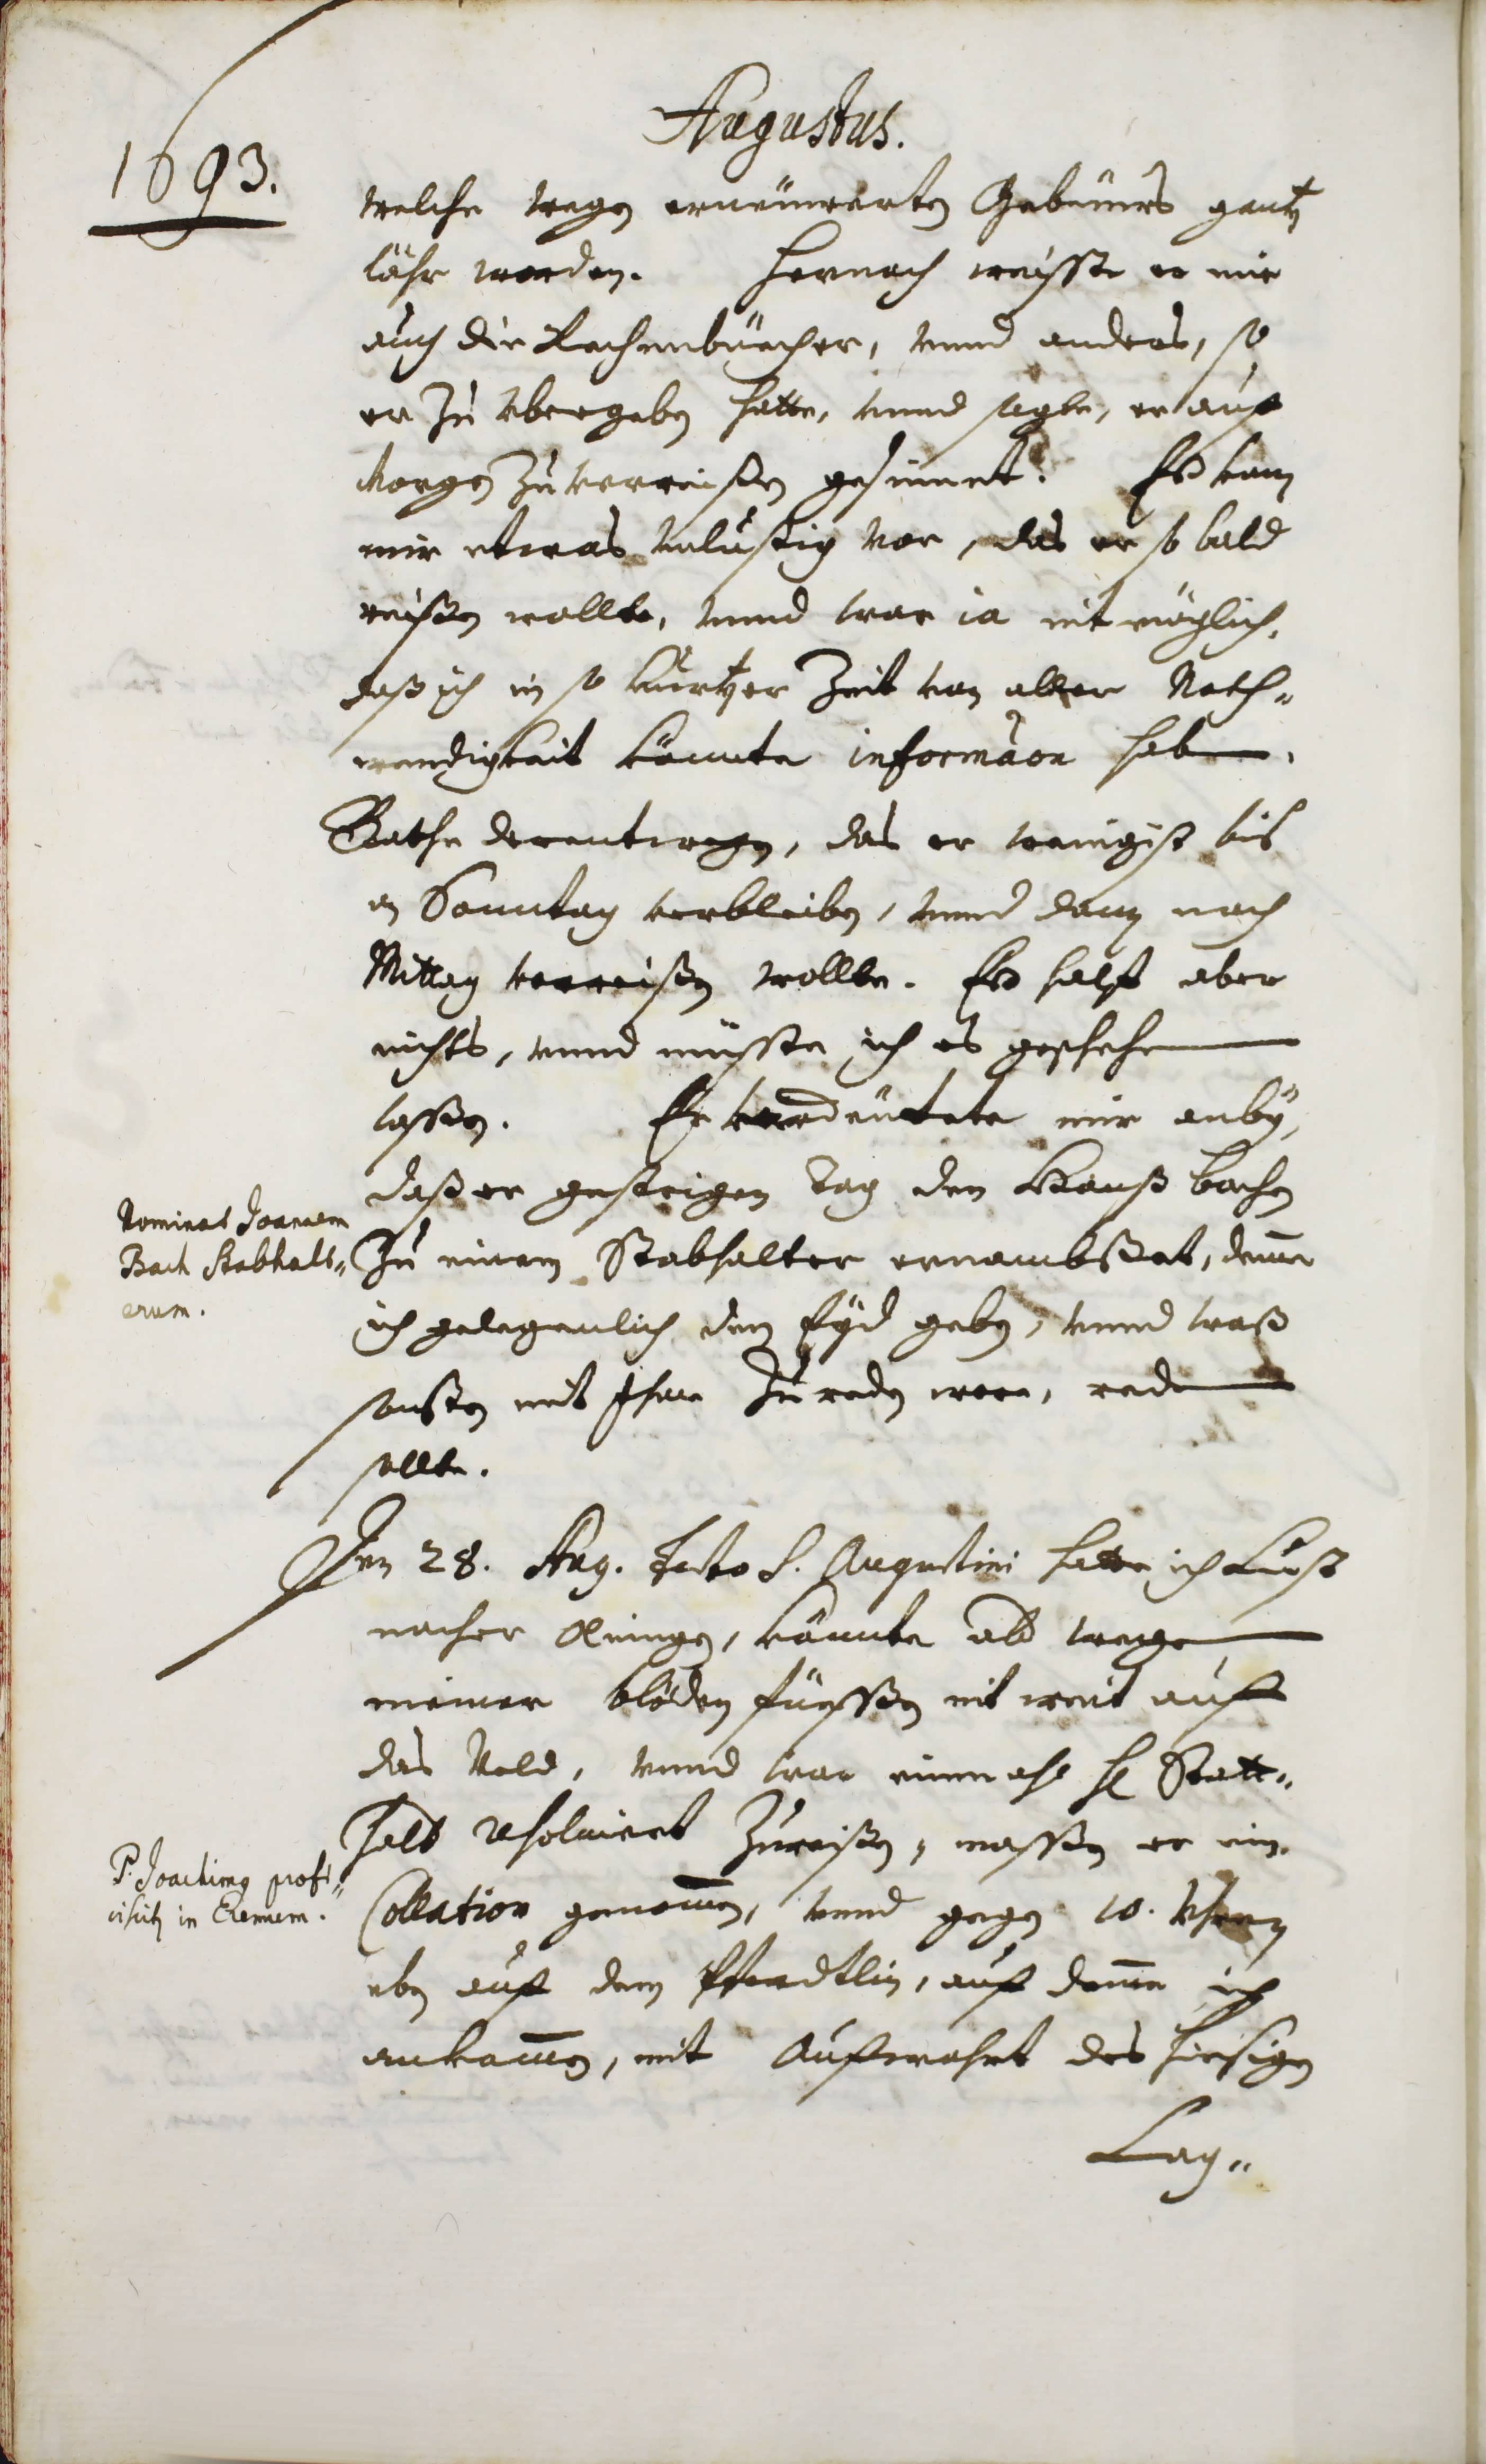 Augustus.
1693.
welche wegen ernëuwerten Gebëuws gantz
lähr worden. Hernach weißte er mir
auch die Rechenbüecher, vnnd anders, so
er zu übergeben hatte, vnnd sagte, er auf
Morgen zu verreißen gesinnet. Es kam
mir etwas vnlustig vor, das er so bald
reißen wollte, vnnd war ia nit möglich,
daß ich in so kurtzer Zeit von aller Noth„
wendigkeit könnte informäon haben.
Bathe derentwegen, das er wenigist bis
an Sonntag verbleiben, vnnd dann nach
Mittag verreißen wollte. Es halff aber
nichts, vnnd müsste ich es geschehen
lassen. Er verdeütete mir anbÿ,
daß er gestrigen Tag den Hanß Bachen
Zu einem Stabhalter ernambset, deme
ich gelegenlich den Eÿd geben, vnnd waß
sonsten mit Ihme zu reden were, reden
sollte.
Nominat Joannem
Bach Stabhalt„
erum.
Den 28. Aug. Festo S. Augustini hatte ich Lust
nacher Öningen, könnte abr wegen
meiner blöden füeßen nit weit auf
das Veld, vnnd war einmahl H Statt„
halt resolviert zureißen, massen er ein
Collation genomen, vnnd gegen 10. Vhren
eben auf dem Pferdtlin, auf deme ich
ankomen, mit Aufwahrt des hiesigen
P. Joachimg profi„
ciscitz in Eremum.
Lag„